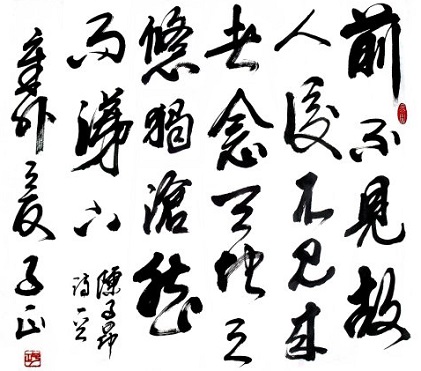 前不見故
人後不見来
者念天地之
悠獨滄然
而涕下
陳子昂
詩一首
辛卯夏子正